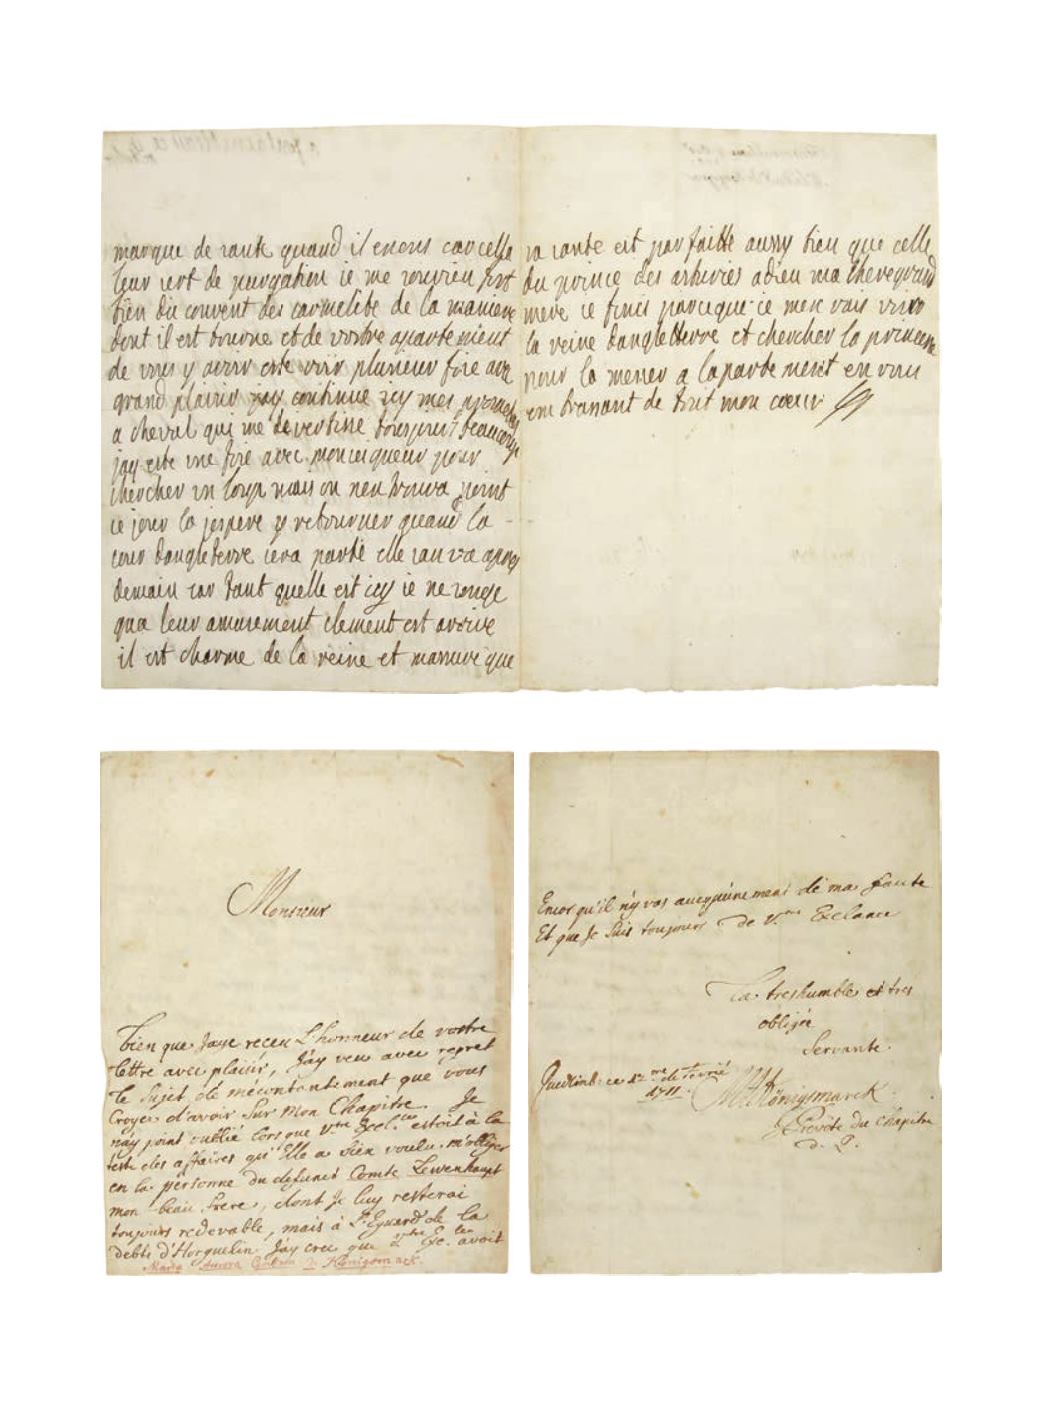 marque de sante quand il enons car cella
leur sert de purgation ie me souvien fort
bien du couvent des carmelite de la maniere
dont il est tourne et de vostre apartement
de vous y avoir este voir plusieur fois avec
grand plaisir jay continue icy mes promenades
a cheval qui me devertisse tousjours beaucoup
jay este une fois avec monseigneur pour
chercher un loup mais on nen trouva point
ce jour la jespere y retourner quand la
cour dangleterre sera partie elle san va apres
demain car tant quelle est icy ie ne songe
qua leur amusement clement est arrive
il est charme de la reine et massure que
sa sante est parfaitte aussy bien que celle
du prince des asturies adieu ma chere grand
mere ie finis parceque ie men vais voir
la reine dangleterre et chercher la princesse
pour la mener a lapartement en vous
embrassant de tout mon coeur
Monsieur
bien que Jaye receu L'honneur de vostre
lettre avec plaisir, J'ay veu avec regret
le Sujet de mécontantement que vous
Croyes d'avoir Sur mon Chapitre. Je
n'ay point oublié lorsque Vtre Excl.ce estoit à la
teste des affaires qu'Elle a bien voulu m'obliger
en la personne du defunct Comte Lewenhaupt
mon beau frere, dont Je luy resterai
toujours redevable, mais à l'Eguard de la
debte d'Horguelin J'ay cree que Vtre Exc.len avoit
Maria Aurora Gräfin v. Königsmark.
Encor qu'il n'y vas aucqu'unement de ma faute
Et que Je Suis toujours de V.re Exclance
La treshumble et tres
obligée
Servante.
Quedlinb: ce 12.me de fevrié
1711.
MA Königsmarck
Prevôte du Chapitre
d. Q.